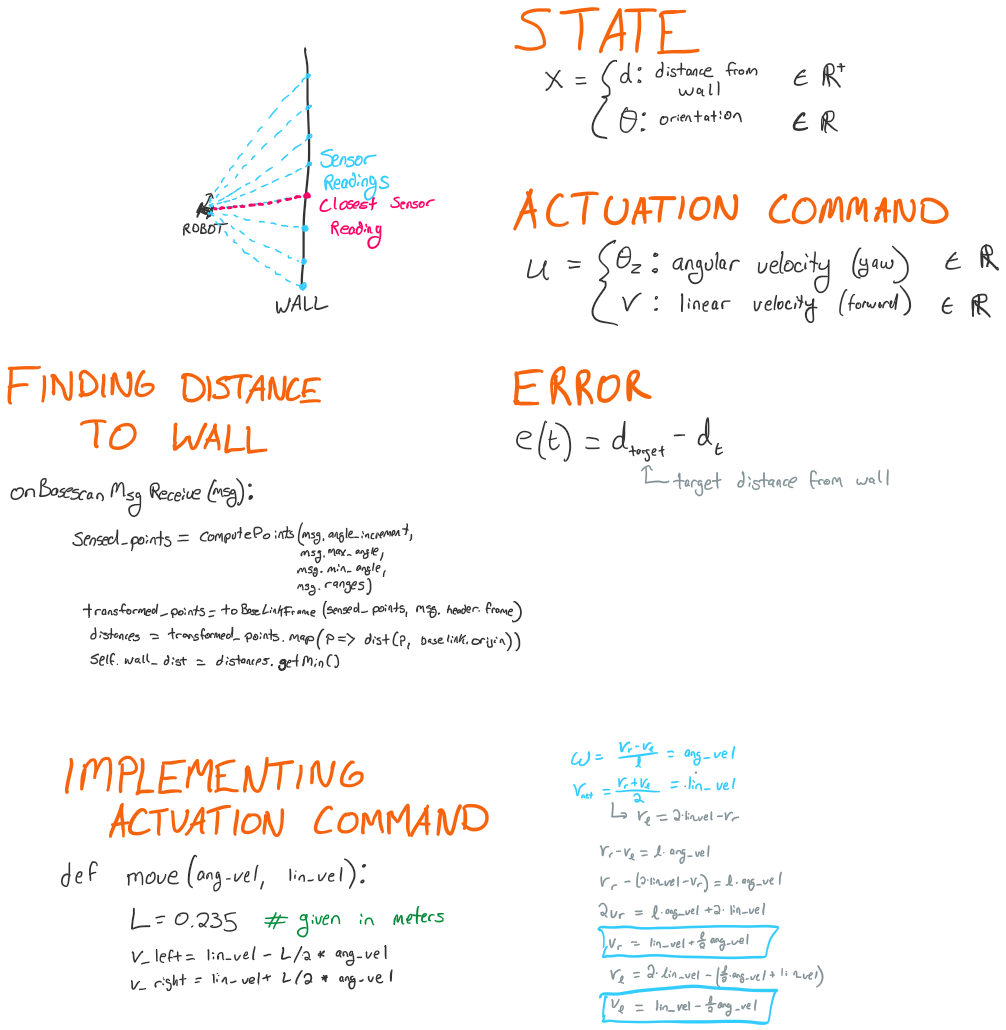 STATE
x = { d: distance from
wall ∈ ℝ⁺
θ: orientation ∈ ℝ
Sensor
Readings
Closest Sensor
Reading
ROBOT
WALL
ACTUATION COMMAND
u = { θ_z: angular velocity (yaw) ∈ ℝ
v: linear velocity (forward) ∈ ℝ
FINDING DISTANCE
TO WALL
onBasescanMsgReceive(msg):
sensed_points = computePoints(msg.angle_increment,
msg.max_angle,
msg.min_angle,
msg.ranges)
transformed_points = toBaseLinkFrame(sensed_points, msg.header.frame)
distances = transformed_points.map(p => dist(p, baselink.origin))
self.wall_dist = distances.getMin()
ERROR
e(t) = d_target - d_t
target distance from wall
IMPLEMENTING
ACTUATION COMMAND
def move(ang-vel, lin_vel):
L = 0.235 # given in meters
v_left = lin_vel - L/2 * ang-vel
v_right = lin_vel + L/2 * ang-vel
ω = (v_r - v_l)/l = ang_vel
v_net = (v_r + v_l)/2 = lin_vel
↳ v_l = 2·linvel - v_r
v_r - v_l = l·ang_vel
v_r - (2·linvel - v_r) = l·ang_vel
2v_r = l·ang_vel + 2·lin_vel
v_r = lin_vel + l/2 ang_vel
v_l = 2·lin_vel - (l/2·ang_vel + lin_vel)
v_l = lin_vel - l/2 ang_vel